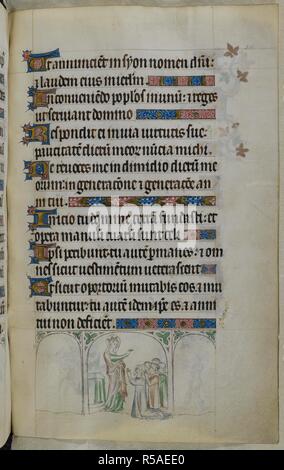 Ut annunciēt in syon nomen dñi:
⁊ laudem eius in ierlm̄.
In conueniēdo poplos in unū: ⁊ reges
ut seruiant domino
Respondit ei in uia uirtutis sue:
paucitatē dierū meoꝝ nūcia michi.
Ne reuoces me in dimidio dierū me
orum: in generacōne ⁊ generacōē an
ni tui.
Inicio tu domine terrā fundasti: et
opera manuū tuaꝝ sunt celi
Ipsi peribunt tu autē permanes: ⁊ om
nes sicut uestimentū ueterascēt
Et sicut optoriū mutabis eos ⁊ mu
tabuntur: tu autē idem ipse es ⁊ anni
tui non deficiēt.
alamy
R5AEE0